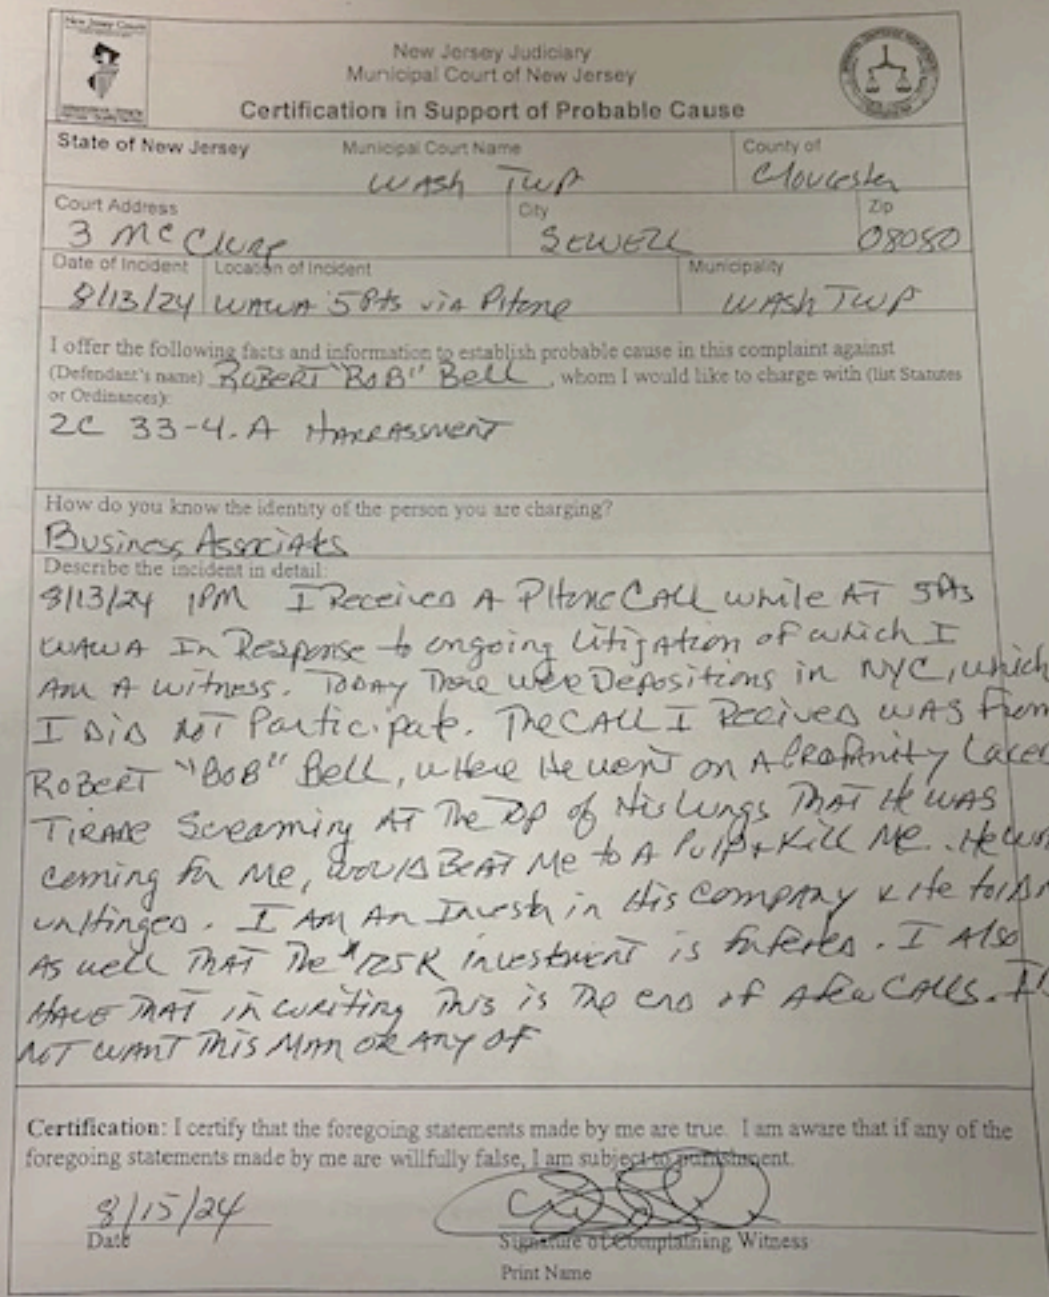 New Jersey Courts
New Jersey Judiciary
Municipal Court of New Jersey
Certification in Support of Probable Cause
State of New Jersey Municipal Court Name County of
WASH TWP Gloucester
Court Address City Zip
3 McClure SEWELL 08080
Date of Incident Location of Incident Municipality
8/13/24 WAWA 5 Pts via Phone WASH TWP
I offer the following facts and information to establish probable cause in this complaint against
(Defendant's name) ROBERT "BOB" Bell, whom I would like to charge with (list Statutes
or Ordinances):
2C 33-4.A HARRASSMENT
How do you know the identity of the person you are charging?
Business Associates
Describe the incident in detail:
8/13/24 1PM I Received A Phone CALL while AT 5 Pts
WAWA In Response to ongoing Litigation of which I
Am A witness. Today There were Depositions in NYC, which
I DID NOT Participate. The CALL I Recived WAS From
ROBERT "BOB" Bell, where He went on A Profanity Laced
TIRADE Screaming AT The Top of His Lungs THAT He WAS
coming for Me, would BEAT Me to A Pulp + Kill Me. He
unHinged. I AM AN Invest in His company & He told
AS well THAT The $125K investment is forfered. I Also
HAVE THAT in writing This is The end of A few CALLS.
NOT WANT This MAN OR ANY OF
Certification: I certify that the foregoing statements made by me are true. I am aware that if any of the
foregoing statements made by me are willfully false, I am subject to punishment.
8/15/24
Date Signature of Complaining Witness
Print Name